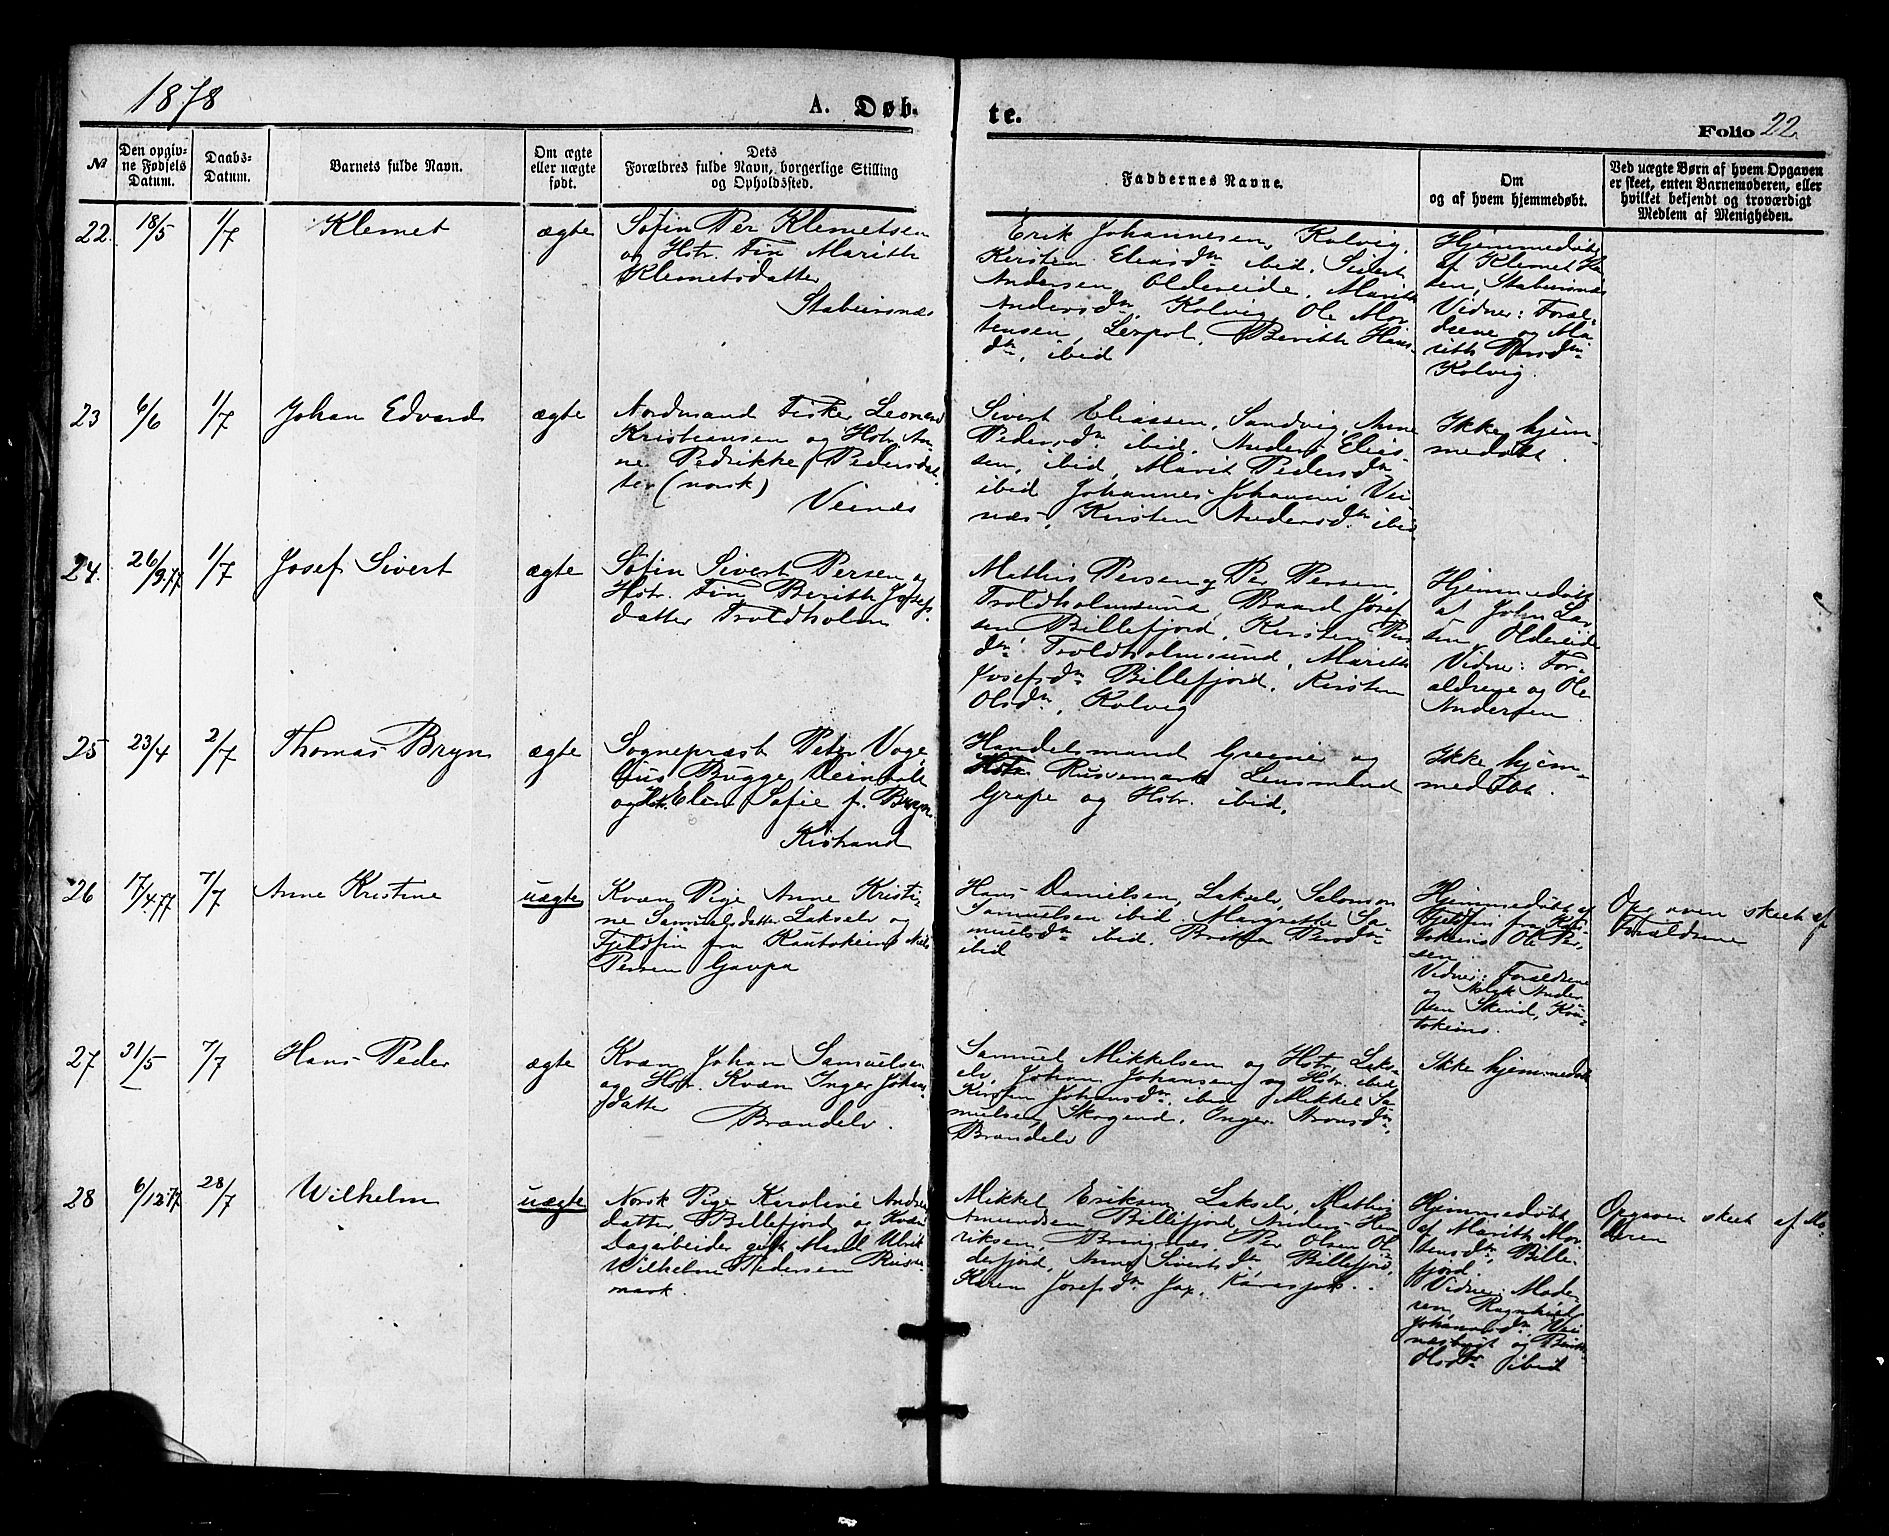 1878
A. Døb-
te.
Folio 22.
№
Den opgiv-
ne Fødsels
Datum.
Daabs-
Datum.
Barnets fulde Navn.
Om ægte
eller uægte
født.
Dets
Forældres fulde Navn, borgerlige Stilling
og Opholdssted.
Faddernes Navne.
Om
og af hvem hjemmedøbt.
Ved uægte Børn af hvem Opgaven
er skeet, enten Barnemoderen, eller
hvilket bekjendt og troværdigt
Medlem af Menigheden.
22.
18/5
1/7
Klemet
ægte
Søfin Per Klemetsen
og Hstr. Fin Marith
Klemetsdatter
Stabursnæs
Erik Johannesen, Kolvig,
Kirsten Eliasdtr ibid. Sivert
Andersen, Oldereide, Marith
Andersdtr, Kolvig, Ole Mor-
tensen, Leirpol, Berith Hans-
dtr, ibid
Hjemmedøbt
af Klemet Han
sen, Stabursnæs
Vidner: Foræl-
drene og Ma-
rith Persdtr
Kolvig.
23
6/6
1/7
Johan Edvard
ægte
Nordmand Fisker Leonard
Kristiansen og Hstr. An-
ne Pedrikke Pedersdat-
ter (norsk)
Veines
Sivert Eliassen, Sandvig, Anne
Pedersdtr ibid. Anders Elias-
sen, ibid, Marit Pedersdtr
ibid Johannes Johannes Vei
næs, Kirsten Andersdtr ibid
Ikke hjem-
medøbt.
24.
26/9 77
1/7
Josef Sivert
ægte
Søfin Sivert Persen og
Hstr. Fin Berith Josefs-
datter Troldholm
Mathis Persen og Per Persen,
Troldholmsund, Baard Josef
sen Billefjord, Kirsten Pers
dtr Troldholmsund, Marith
Josefsdtr Billefjord, Kirsten
Olsdtr, Kolvig
Hjemmedøbt
af John Lar
sen, Oldereide
Vidner: For-
ældrene og Ole
Andersen
25
23/4
2/7
Thomas Bryn
ægte
Sognepræst Peter Voge-
lius Bugge Deinboll
og Hstr. Elen Sofie f. Bryn.
Kistrand
Handelsmand Greiner og
Hstr. Russemark Lensmand
Grape og Hstr. ibid.
Ikke hjem-
medøbt.
26
17/4 77
7/7
Anne Kristine
uægte
Kvæn Pige Anne Kristi-
ne Samuelsdatter Lakselv og
Fjeldfin fra Kautokeino Nils
Persen Gaupa
Hans Danielsen, Lakselv, Salomon
Samuelsen ibid. Margrethe Sa-
muelsdtr ibid. Britha Persdtr
ibid
Hjemmedøbt af
Fjeldfin fra Kau-
tokeino Ole Per-
sen.
Vidner: Forældrene
og Aslak Ander
sen Skind, Kau-
tokeino.
Opgaven skeet af
Forældrene
27
31/5
7/7
Hans Peder
ægte
Kvæn Johan Samuelsen
og Hstr. Kvæn Inger Johans-
datter
Brændelv.
Samuel Mikkelsen og Hstr, Laks-
elv, Johan Johansen og Hstr. ibid,
Kirsten Johansdtr, ibid Mikkel Sa-
muelsen, Skogend, Inger Aronsdtr,
Brændelv
Ikke hjemmedøbt
28
6/12 77
28/7
Wilhelm
uægte
Norsk Pige Karoline Andreas
datter Billefjord og Kvæn
Dagarbeider gift Mand Ulrik
Wilhelm Pedersen Russe-
mark.
Mikkel Eriksen Lakselv, Mathis
Amundsen Billefjord, Anders Hen
riksen, Bringnæs, Per Olsen Ol-
derfjord, Anne Sivertsdtr, Billefjord,
Karen Josefsdtr Jax, Karasjok.
Hjemmedøbt
af Marith Mor
tensdtr, Bille-
fjord
Vidner: Mode-
ren, Ragnhild
Johannesdtr Vei
næsbugt og Berith
Olsdtr ibid
Opgaven skeet af Mo-
deren